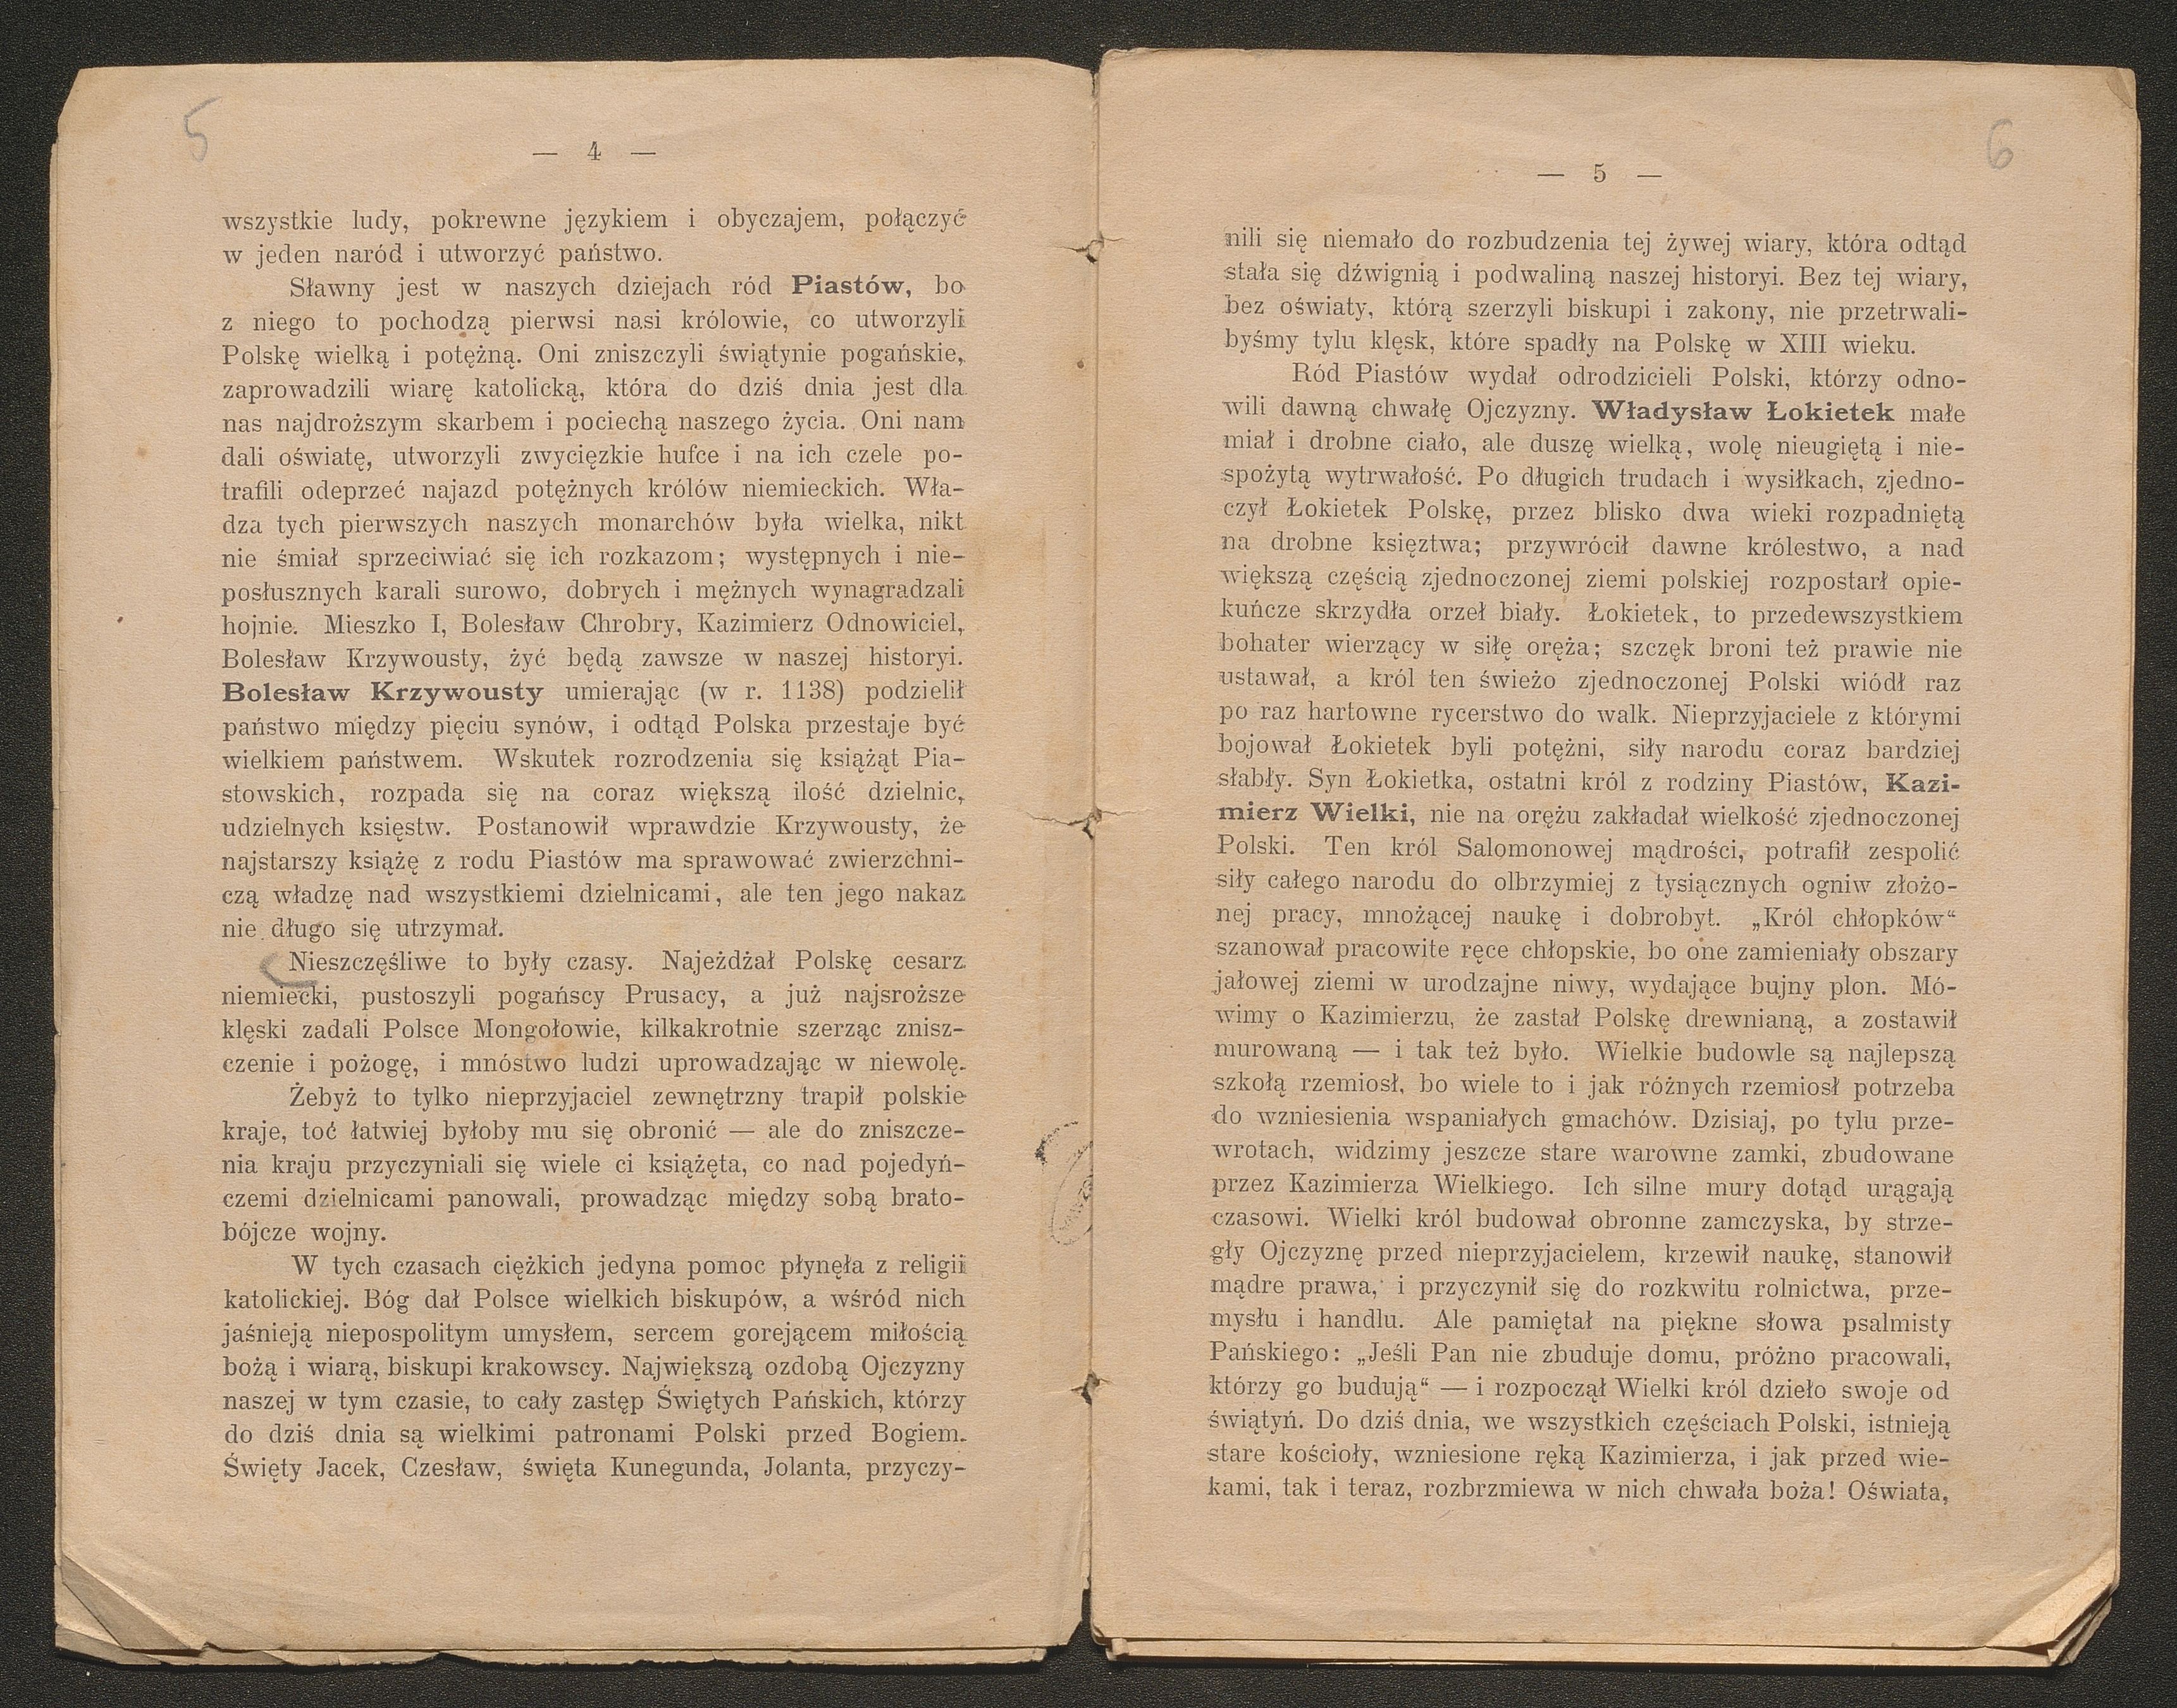 5
— 4 —
wszystkie ludy, pokrewne językiem i obyczajem, połączyć
w jeden naród i utworzyć państwo.
Sławny jest w naszych dziejach ród Piastów, bo
z niego to pochodzą pierwsi nasi królowie, co utworzyli
Polskę wielką i potężną. Oni zniszczyli świątynie pogańskie,
zaprowadzili wiarę katolicką, która do dziś dnia jest dla
nas najdroższym skarbem i pociechą naszego życia. Oni nam
dali oświatę, utworzyli zwycięzkie hufce i na ich czele po-
trafili odeprzeć najazd potężnych królów niemieckich. Wła-
dza tych pierwszych naszych monarchów była wielka, nikt
nie śmiał sprzeciwiać się ich rozkazom; występnych i nie-
posłusznych karali surowo, dobrych i mężnych wynagradzali
hojnie. Mieszko I, Bolesław Chrobry, Kazimierz Odnowiciel,
Bolesław Krzywousty, żyć będą zawsze w naszej historyi.
Bolesław Krzywousty umierając (w r. 1138) podzielił
państwo między pięciu synów, i odtąd Polska przestaje być
wielkiem państwem. Wskutek rozrodzenia się książąt Pia-
stowskich, rozpada się na coraz większą ilość dzielnic,
udzielnych księstw. Postanowił wprawdzie Krzywousty, że
najstarszy książę z rodu Piastów ma sprawować zwierzchni-
czą władzę nad wszystkiemi dzielnicami, ale ten jego nakaz
nie długo się utrzymał.
Nieszczęśliwe to były czasy. Najeżdżał Polskę cesarz
niemiecki, pustoszyli pogańscy Prusacy, a już najsroższe
klęski zadali Polsce Mongołowie, kilkakrotnie szerząc znisz-
czenie i pożogę, i mnóstwo ludzi uprowadzając w niewolę.
Żebyż to tylko nieprzyjaciel zewnętrzny trapił polskie
kraje, toć łatwiej byłoby mu się obronić — ale do zniszcze-
nia kraju przyczyniali się wiele ci książęta, co nad pojedyń-
czemi dzielnicami panowali, prowadząc między sobą brato-
bójcze wojny.
W tych czasach ciężkich jedyna pomoc płynęła z religii
katolickiej. Bóg dał Polsce wielkich biskupów, a wśród nich
jaśnieją niepospolitym umysłem, sercem gorejącem miłością
bożą i wiarą, biskupi krakowscy. Największą ozdobą Ojczyzny
naszej w tym czasie, to cały zastęp Świętych Pańskich, którzy
do dziś dnia są wielkimi patronami Polski przed Bogiem.
Święty Jacek, Czesław, święta Kunegunda, Jolanta, przyczy-
6
— 5 —
nili się niemało do rozbudzenia tej żywej wiary, która odtąd
stała się dźwignią i podwaliną naszej historyi. Bez tej wiary,
bez oświaty, którą szerzyli biskupi i zakony, nie przetrwali-
byśmy tylu klęsk, które spadły na Polskę w XIII wieku.
Ród Piastów wydał odrodzicieli Polski, którzy odno-
wili dawną chwałę Ojczyzny. Władysław Łokietek małe
miał i drobne ciało, ale duszę wielką, wolę nieugiętą i nie-
spożytą wytrwałość. Po długich trudach i wysiłkach, zjedno-
czył Łokietek Polskę, przez blisko dwa wieki rozpadniętą
na drobne księztwa; przywrócił dawne królestwo, a nad
większą częścią zjednoczonej ziemi polskiej rozpostarł opie-
kuńcze skrzydła orzeł biały. Łokietek, to przedewszystkiem
bohater wierzący w siłę oręża; szczęk broni też prawie nie
ustawał, a król ten świeżo zjednoczonej Polski wiódł raz
po raz hartowne rycerstwo do walk. Nieprzyjaciele z którymi
bojował Łokietek byli potężni, siły narodu coraz bardziej
słabły. Syn Łokietka, ostatni król z rodziny Piastów, Kazi-
mierz Wielki, nie na orężu zakładał wielkość zjednoczonej
Polski. Ten król Salomonowej mądrości, potrafił zespolić
siły całego narodu do olbrzymiej z tysiącznych ogniw złożo-
nej pracy, mnożącej naukę i dobrobyt. „Król chłopków“
szanował pracowite ręce chłopskie, bo one zamieniały obszary
jałowej ziemi w urodzajne niwy, wydające bujny plon. Mó-
wimy o Kazimierzu, że zastał Polskę drewnianą, a zostawił
murowaną — i tak też było. Wielkie budowle są najlepszą
szkołą rzemiosł, bo wiele to i jak różnych rzemiosł potrzeba
do wzniesienia wspaniałych gmachów. Dzisiaj, po tylu prze-
wrotach, widzimy jeszcze stare warowne zamki, zbudowane
przez Kazimierza Wielkiego. Ich silne mury dotąd urągają
czasowi. Wielki król budował obronne zamczyska, by strze-
gły Ojczyznę przed nieprzyjacielem, krzewił naukę, stanowił
mądre prawa, i przyczynił się do rozkwitu rolnictwa, prze-
mysłu i handlu. Ale pamiętał na piękne słowa psalmisty
Pańskiego: „Jeśli Pan nie zbuduje domu, próżno pracowali,
którzy go budują“ — i rozpoczął Wielki król dzieło swoje od
świątyń. Do dziś dnia, we wszystkich częściach Polski, istnieją
stare kościoły, wzniesione ręką Kazimierza, i jak przed wie-
kami, tak i teraz, rozbrzmiewa w nich chwała boża! Oświata,